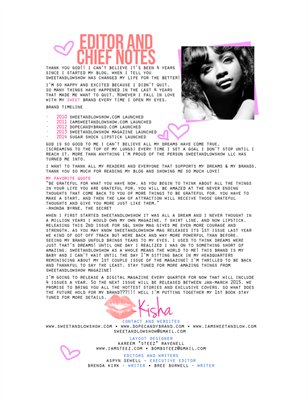 EDITOR AND
CHIEF NOTES
THANK YOU GOD!! I CAN'T BELIEVE IT'S BEEN 4 YEARS
SINCE I STARTED MY BLOG. WHEN I TELL YOU
SWEETANDLOWSHOW HAS CHANGED MY LIFE FOR THE BETTER!
I'M SO HAPPY AND EXCITED BECAUSE I DIDN'T QUIT.
SO MANY THINGS HAVE HAPPENED IN THE LAST 4 YEARS
THAT MADE ME WANT TO QUIT. HOWEVER I FALL IN LOVE
WITH MY SWEET BRAND EVERY TIME I OPEN MY EYES.
BRAND TIMELINE
2010 SWEETANDLOWSHOW.COM LAUNCHED
2011 IAMSWEETANDLOWSHOW.COM LAUNCHED
2012 DOPECANDYBRAND.COM LAUNCHED
2013 SWEETANDLOWSHOW MAGAZINE LAUNCHED
2014 SUGAR SHOCK LIPSTICK LAUNCHED
GOD IS SO GOOD TO ME I CAN'T BELIEVE ALL MY DREAMS HAVE COME TRUE.
(SCREAMING TO THE TOP OF MY LUNGS) EVERY TIME I SET A GOAL I DON'T STOP UNTIL I
REACH IT. MORE THAN ANYTHING I'M PROUD OF THE PERSON SWEETANDLOWSHOW LLC HAS
TURNED ME INTO.
I WANT TO THANK ALL MY READERS AND EVERYONE THAT SUPPORTS MY DREAMS & MY BRANDS.
THANK YOU SO MUCH FOR READING MY BLOG AND SHOWING ME SO MUCH LOVE!
MY FAVORITE QUOTE
"BE GRATEFUL FOR WHAT YOU HAVE NOW. AS YOU BEGIN TO THINK ABOUT ALL THE THINGS
IN YOUR LIFE YOU ARE GRATEFUL FOR, YOU WILL BE AMAZED AT THE NEVER ENDING
THOUGHTS THAT COME BACK TO YOU OF MORE THINGS TO BE GRATEFUL FOR. YOU HAVE TO
MAKE A START, AND THEN THE LAW OF ATTRACTION WILL RECEIVE THOSE GRATEFUL
THOUGHTS AND GIVE YOU MORE JUST LIKE THEM."
-RHONDA BYRNE, THE SECRET
WHEN I FIRST STARTED SWEETANDLOWSHOW IT WAS ALL A DREAM AND I NEVER THOUGHT IN
A MILLION YEARS I WOULD OWN MY OWN MAGAZINE, T SHIRT LINE, AND NOW LIPSTICK.
RELEASING THIS 2ND ISSUE FOR SAL SHOW MAG GIVES ME EVEN MORE COURAGE AND
STRENGTH. AS YOU MAY KNOW SWEETANDLOWSHOW MAG RELEASED IT'S 1ST ISSUE LAST YEAR
WE KIND OF GOT OFF TRACK BUT NOW WE ARE BACK WAY MORE POWERFUL THAN BEFORE.
SEEING MY BRAND UNFOLD BRINGS TEARS TO MY EYES. I USED TO THINK DREAMS WERE
JUST THAT'S DREAMS UNTIL ONE DAY I REALIZED I WAS ON TO SOMETHING SO GREAT OF
AMAZING. SWEETANDLOWSHOW AS A WHOLE MEANS THE WORLD TO ME! THIS BRAND IS MY
BABY AND I CAN'T WAIT UNTIL THE DAY I'M SITTING BACK IN MY HEADQUARTERS
REMINISCING ABOUT MY 1ST COUPLE ISSUE OF THE MAGAZINE! I'M THRILLED TO BE BACK
AND THANKFUL TO SAY THE LEAST. STAY TUNED FOR MORE AMAZING THINGS FROM
SWEETANDLOWSHOW MAGAZINE!
I'M GOING TO RELEASE A DIGITAL MAGAZINE EVERY QUARTER FOR NOW THAT WILL INCLUDE
4 ISSUES A YEAR. SO THE NEXT ISSUE WILL BE RELEASED BETWEEN JAN-MARCH 2015. WE
PROMISE TO BRING YOU ALL THE HOTTEST STORIES AND EXCLUSIVE COVERS. SO WHAT DOES
THE FUTURE HOLD FOR MY BRAND????!!! WELL I'M PUTTING TOGETHER MY 1ST BOOK STAY
TUNED FOR MORE DETAILS.
Kisha
CONTACT AND WEBSITES
WWW.SWEETANDLOWSHOW.COM • WWW.DOPECANDYBRAND.COM • WWW.IAMSWEETANDLOWSHOW.COM
SWEETANDLOWSHOW@GMAIL.COM
LAYOUT DESIGNER
KAREEM "STEEZ" RAVENELL
WWW.IAMSTEEZ.COM • BOMBSTEEZ@GMAIL.COM
EDITORS AND WRITERS
ASPYN SEWELL - EXECUTIVE EDITOR
BRENDA KIRK - WRITER • BREE BURWELL - WRITER